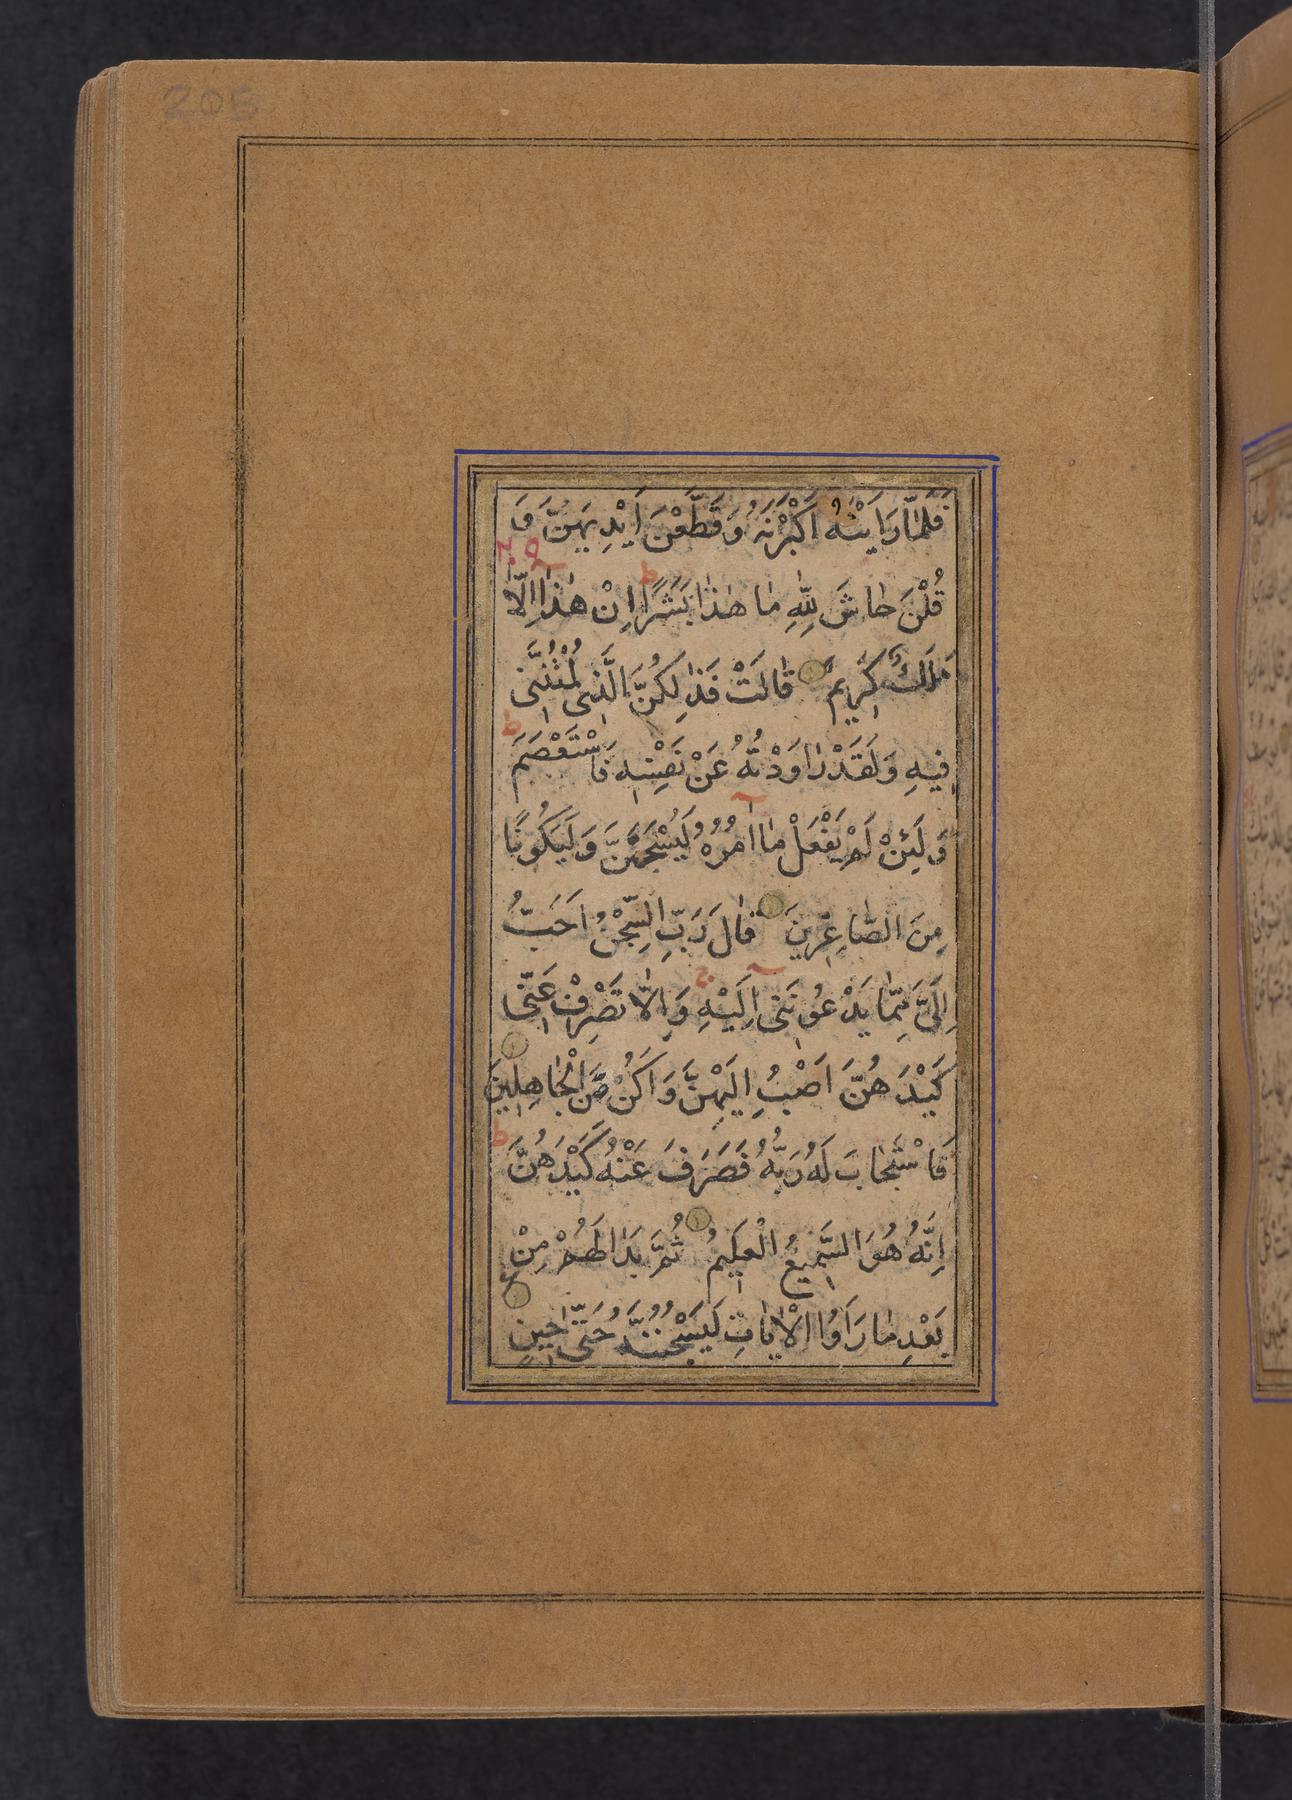 205
فَلَمّٰا رَاَيْنَهُ اَكْبَرْنَهُ وَقَطَّعْنَ اَيْدِيَهُنَّ وَ
قُلْنَ حٰاشَ لِلّٰهِ مٰا هٰذٰا بَشَرًا اِنْ هٰذٰا اِلّٰا
مَلَكٌ كَرِيمٌ قٰالَتْ فَذٰلِكُنَّ الَّذِى لُمْتُنَّنِى
فِيهِ وَلَقَدْ رٰاوَدْتُهُ عَنْ نَفْسِهِ فَاسْتَعْصَمَ
وَلَئِنْ لَمْ يَفْعَلْ مٰا اٰمُرُهُ لَيُسْجَنَنَّ وَلَيَكُونًا
مِنَ الصّٰاغِرِينَ قٰالَ رَبِّ السِّجْنُ اَحَبُّ
اِلَىَّ مِمّٰا يَدْعُونَنِى اِلَيْهِ وَاِلّٰا تَصْرِفْ عَنِّى
كَيْدَهُنَّ اَصْبُ اِلَيْهِنَّ وَاَكُنْ مِنَ الْجٰاهِلِينَ
فَاسْتَجٰابَ لَهُ رَبُّهُ فَصَرَفَ عَنْهُ كَيْدَهُنَّ
اِنَّهُ هُوَ السَّمِيعُ الْعَلِيمُ ثُمَّ بَدٰا لَهُمْ مِنْ
بَعْدِ مٰا رَاَوُا الْاٰيٰاتِ لَيَسْجُنُنَّهُ حَتّٰى حِينٍ